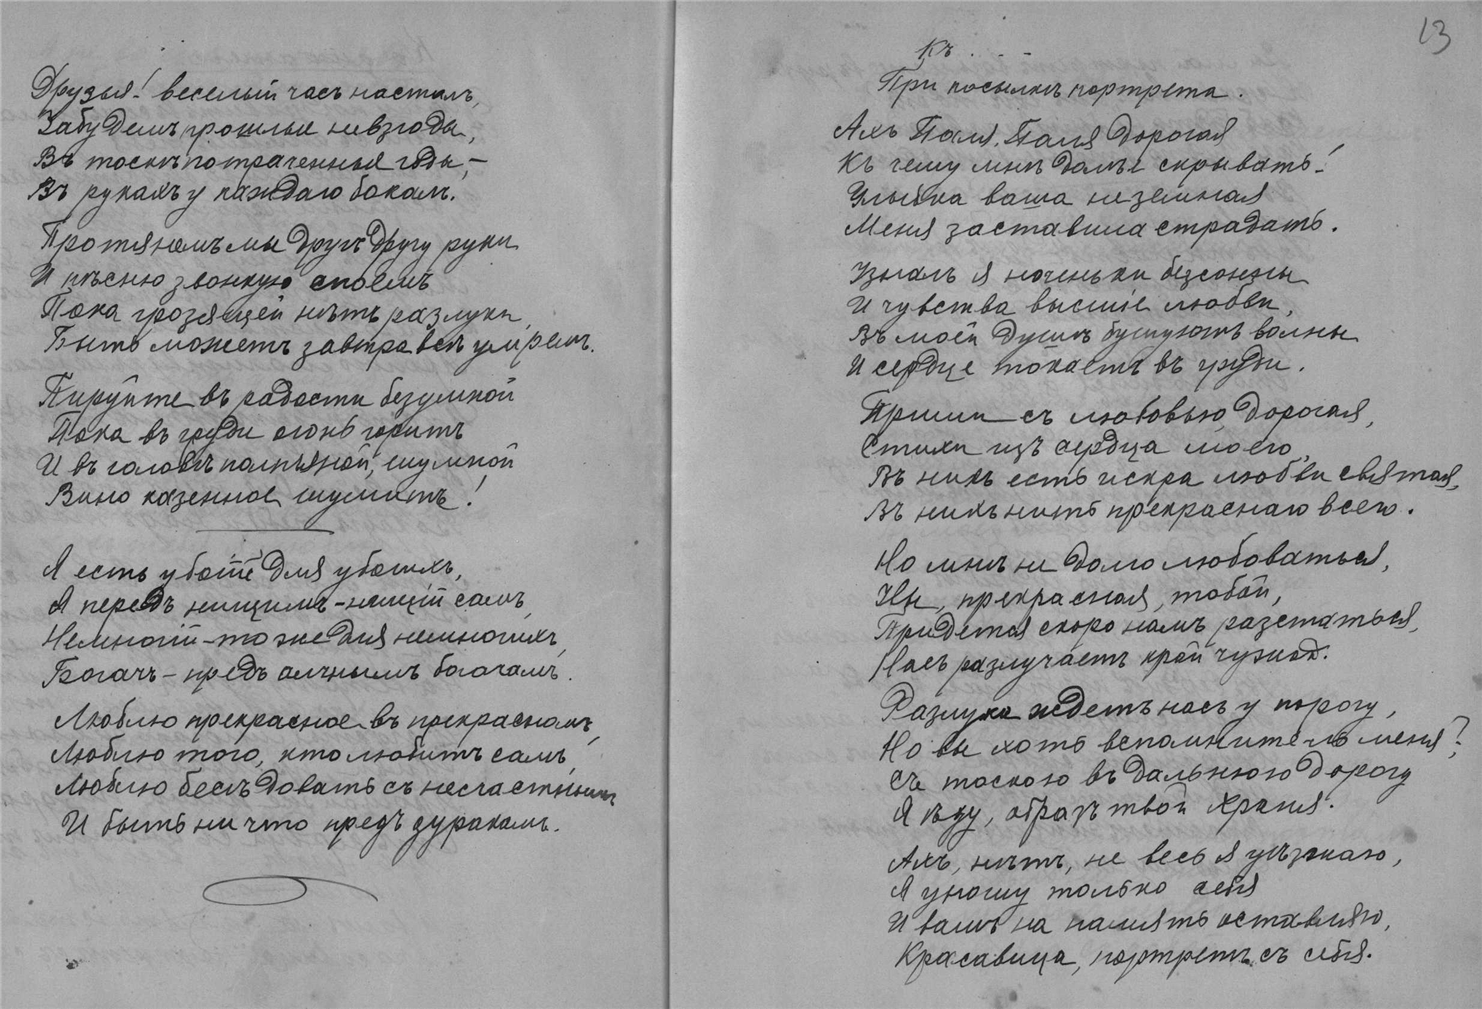 Друзья! веселый часъ насталъ,
Забудемъ прошлые невзгоды,
Въ тоскѣ потраченные годы, –
Въ рукахъ у каждаго бокалъ.
Протянемъ мы другъ другу руки
И пѣсню звонкую споемъ
Пока грозящей нѣтъ разлуки,
Быть можетъ завтра всѣ умремъ.
Пируйте въ радости безумной
Пока въ груди огонь горитъ
И въ головѣ полпьяной, шумной
Вино казенное шумитъ!
Я есть убогій для убогихъ,
Я передъ нищимъ – нищій самъ,
Немногій – тоже для немногихъ,
Богачъ – предъ алчнымъ богачамъ.
Люблю прекрасное въ прекрасномъ,
Люблю того, кто любитъ самъ,
Люблю бесѣдовать съ несчастнымъ
И быть ничто предъ дуракамъ.
13
Къ . . . -
При посылкѣ портрета.
Ахъ Поля, Поля дорогая
Къ чему мнѣ далѣе скрывать!
Улыбка ваша неземная
Меня заставила страдать.
Узналъ я ноченьки безсонны
И чувства высшіе любви,
Въ моей душѣ бушуютъ волны
И сердце токаетъ въ груди.
Прими съ любовью дорогая,
Стихи изъ сердца моего,
Въ нихъ есть искра любви святая,
Въ нихъ нить прекраснаго всего.
Но мнѣ не долго любоваться,
Увы, прекрасная, тобой,
Придется скоро намъ разстаться,
Насъ разлучаетъ край чужой.
Разлука ждетъ насъ у порогу,
Но вы хоть вспомните-ль меня?
Съ тоскою въ дальнюю дорогу
Я ѣду, образъ твой храня.
Ахъ, нѣтъ, не весь я уѣзжаю,
Я уношу только себя
И вамъ на память оставляю,
Красавица, портретъ съ себя.